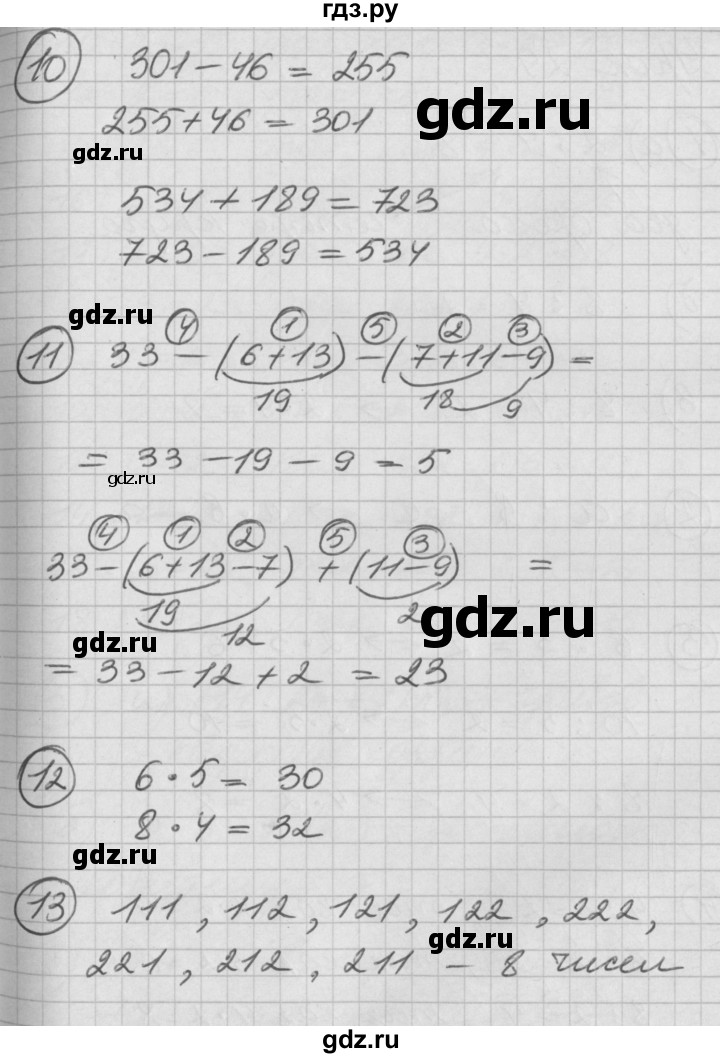 гдз.ру
10 301 - 46 = 255
gdz.ru
255 + 46 = 301
gdz.ru
534 + 189 = 723
723 - 189 = 534
gdz.ru
4 1 5 2 3
11 33 - (6+13) - (7+11-9) =
19 18 9
= 33 - 19 - 9 = 5
gdz.ru
4 1 2 5 3
33 - (6+13-7) + (11-9) =
19 12 2
gdz.ru
gdz.ru
= 33 - 12 + 2 = 23
12 6 · 5 = 30
8 · 4 = 32
gdz.ru
13 111, 112, 121, 122, 222,
gdz.ru
221, 212, 211 - 8 чисел
gdz.ru